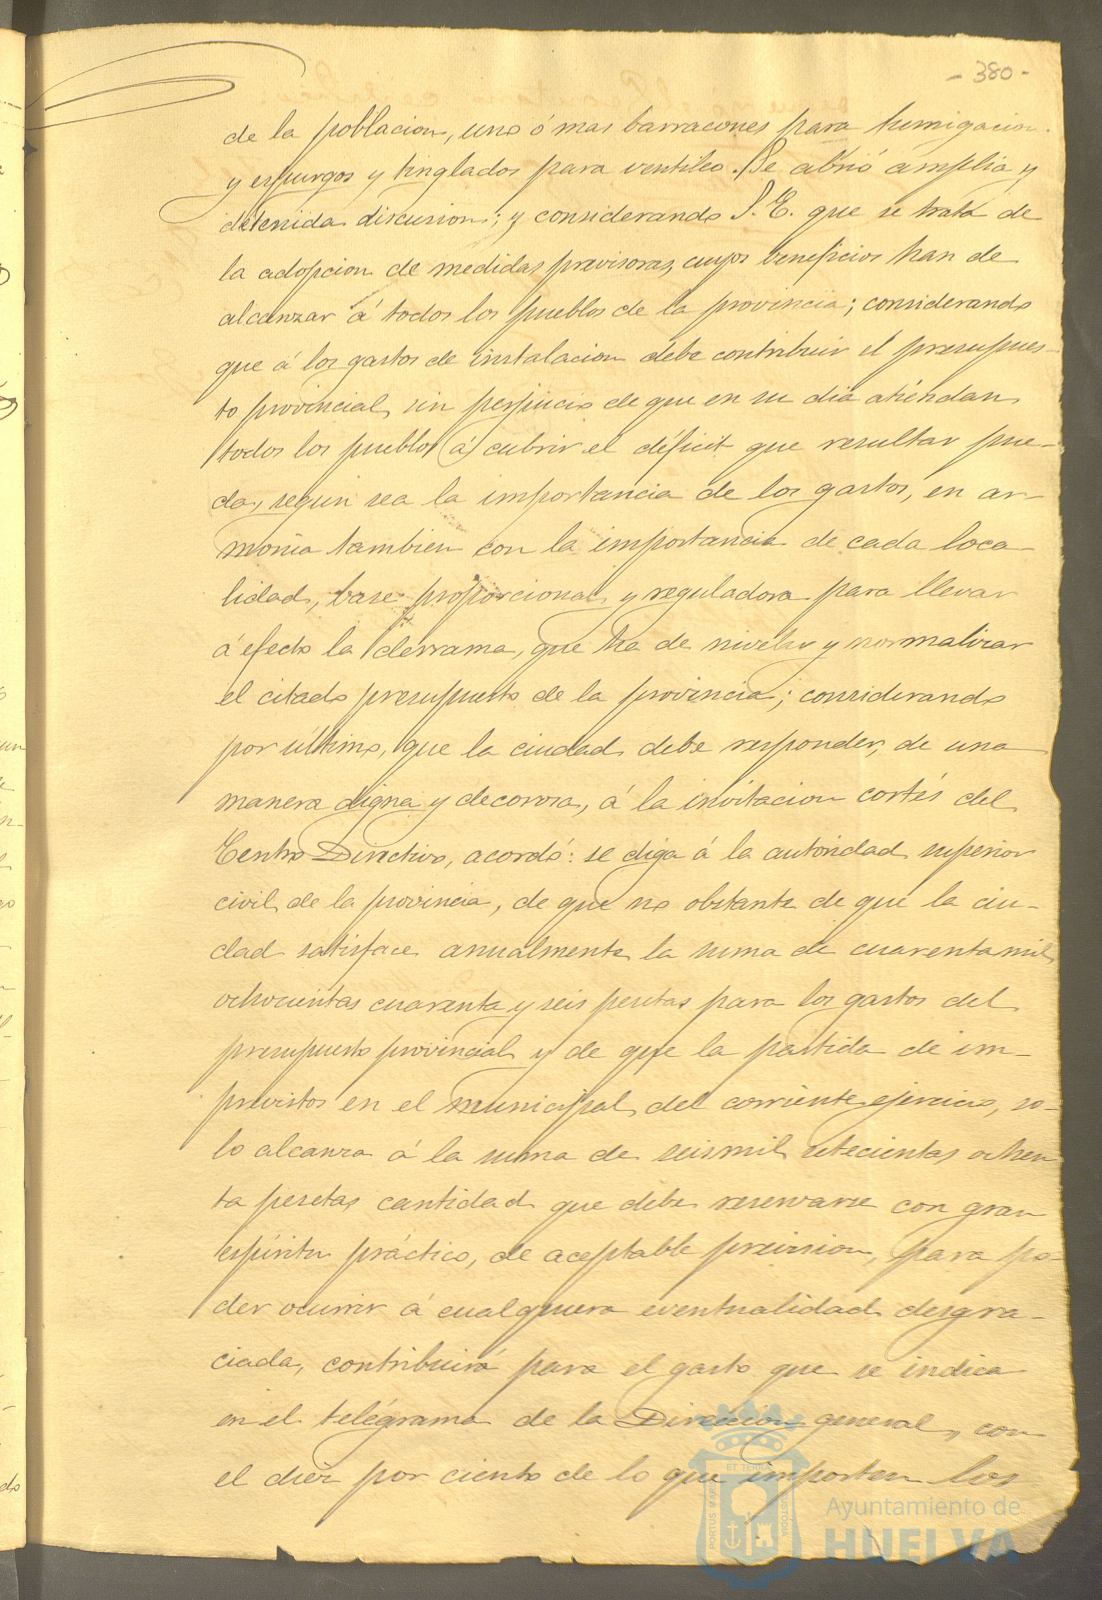 - 380 -
de la poblacion, uno ó mas barracones para fumigacion
y espurgos y tinglados para ventileo. Se abrió amplia y
detenida discusion; y considerando S. E. que se trata de
la adopcion de medidas previsoras, cuyos beneficios han de
alcanzar á todos los pueblos de la provincia; considerando
que á los gastos de instalacion debe contribuir el presupues-
to provincial, sin perjuicio de que en su dia atiendan
todos los pueblos á cubrir el déficit que resultar pue-
da, segun sea la importancia de los gastos, en ar-
monia tambien con la importancia de cada loca-
lidad, base proporcional y reguladora para llevar
á efecto la derrama, que ha de nivelar y normalizar
el citado presupuesto de la provincia; considerando
por último, que la ciudad debe responder, de una
manera digna y decorosa, á la invitacion cortés del
Centro Directivo, acordó: se diga á la autoridad superior
civil de la provincia, de que no obstante de que la ciu-
dad satisface anualmente la suma de cuarenta mil
ochocientas cuarenta y seis pesetas para los gastos del
presupuesto provincial y de que la partida de im-
previstos en el municipal del corriente ejercicio, so-
lo alcanza á la suma de seismil setecientas ochen
ta pesetas cantidad que debe reservarse con gran
espíritu práctico, de aceptable prevision, para po-
der ocurrir á cualquiera eventualidad desgra-
ciada, contribuirá para el gasto que se indica
en el telégrama de la Direccion general, con
el diez por ciento de lo que importen los
ET TERRAE
PORTUS MARIS
CUSTODIA
Ayuntamiento de
HUELVA